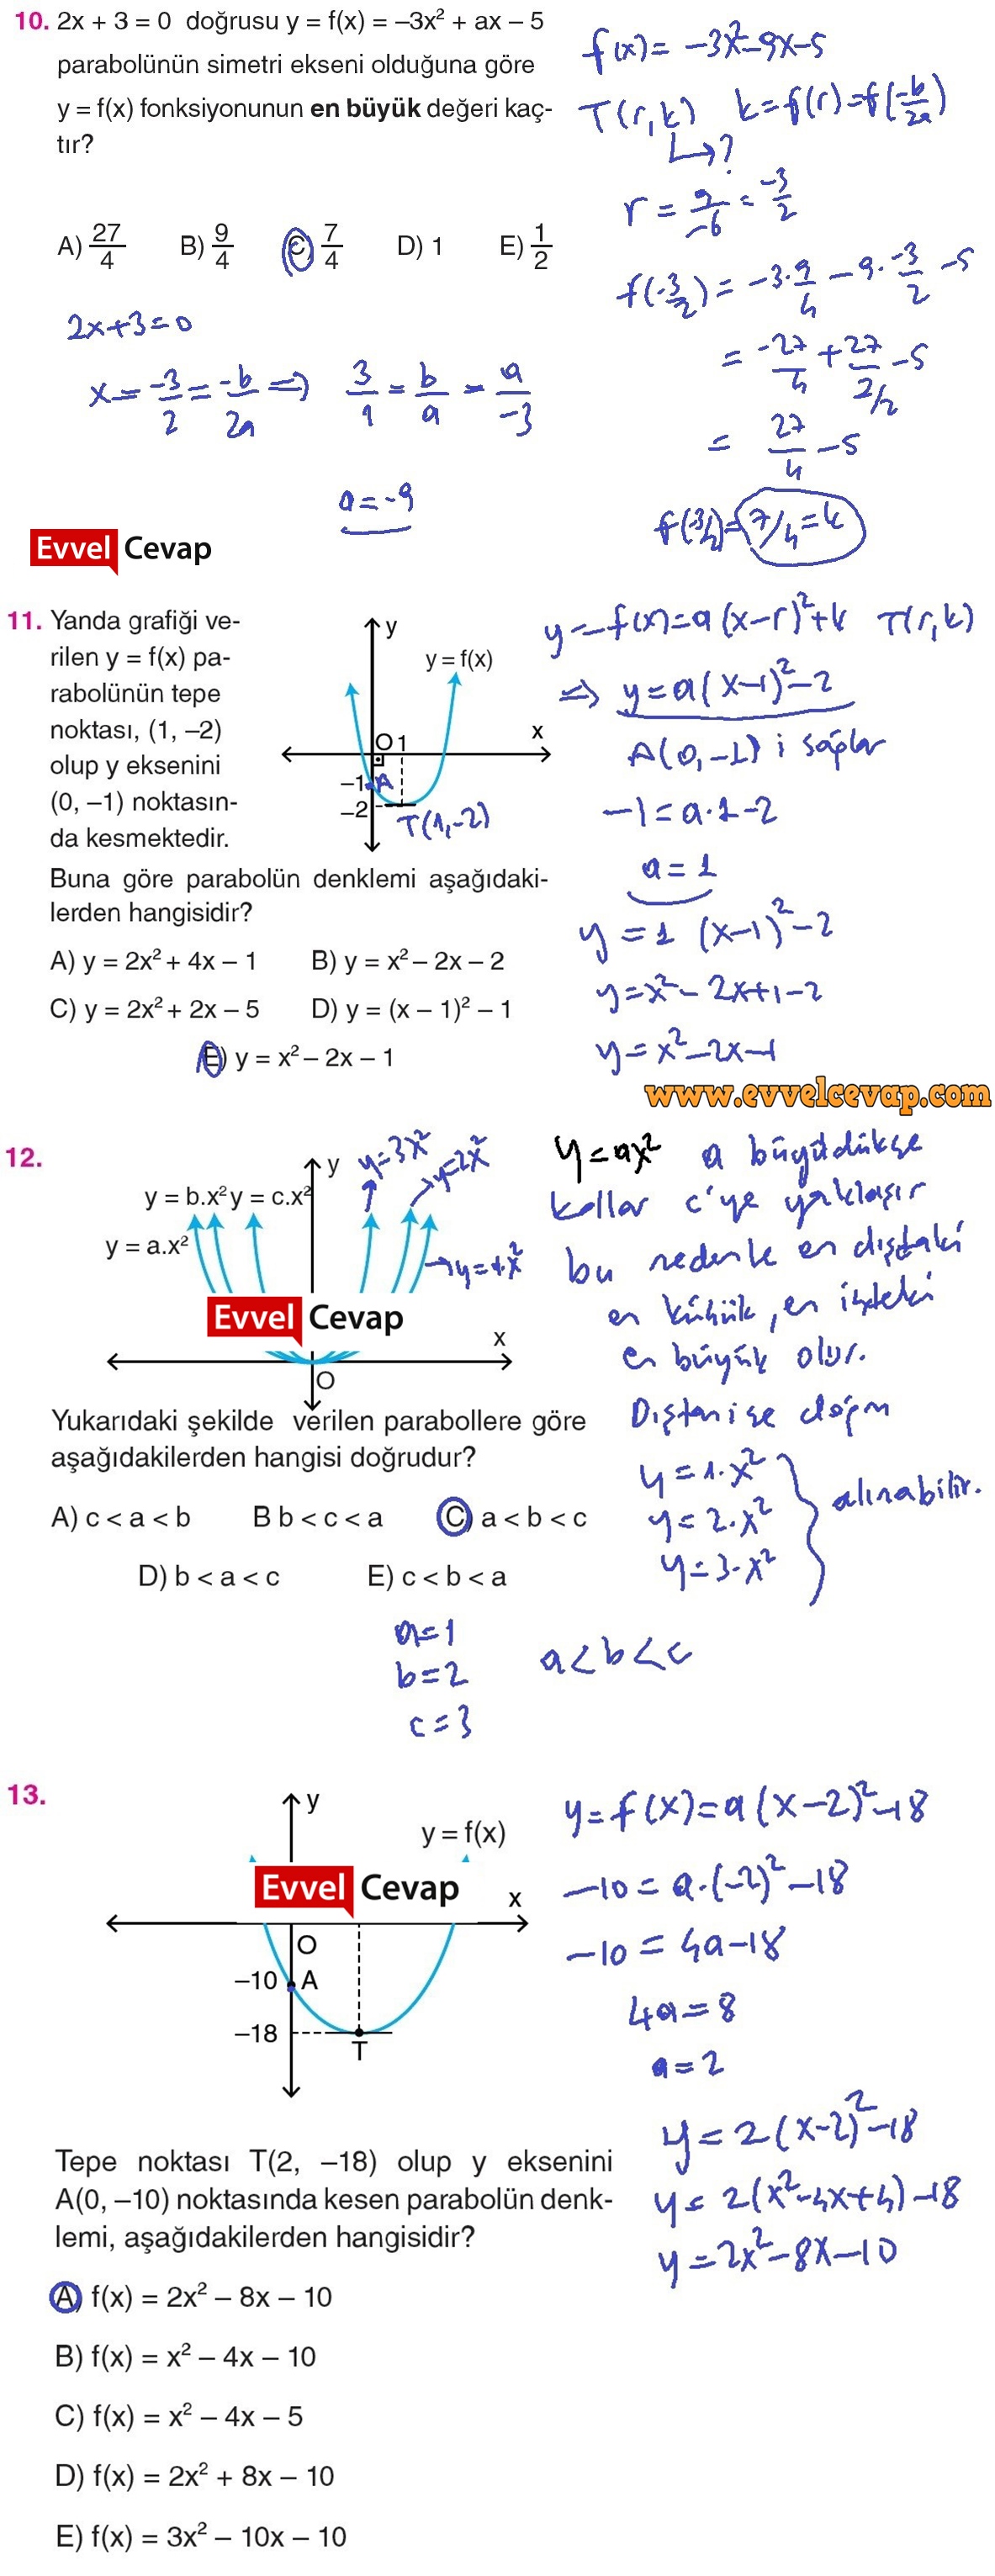 10. 2x + 3 = 0 doğrusu y = f(x) = –3x² + ax – 5
parabolünün simetri ekseni olduğuna göre
y = f(x) fonksiyonunun en büyük değeri kaç-
tır?
A) 27/4 B) 9/4 C) 7/4 D) 1 E) 1/2
2x+3=0
x = -3/2 = -b/2a ⇒ 3/1 = b/a = a/-3
a = -9
f(x) = -3x²-9x-5
T(r,k) k = f(r) = f(-b/2a)
↳ ?
r = 9/-6 = -3/2
f(-3/2) = -3·9/4 - 9·-3/2 - 5
= -27/4 + 27/2/2 - 5
= 27/4 - 5
7/4 = k
Evvel Cevap
11. Yanda grafiği ve-
rilen y = f(x) pa-
rabolünün tepe
noktası, (1, –2)
olup y eksenini
(0, –1) noktasın-
da kesmektedir.
y
y = f(x)
O 1
x
–1 A
–2
T(1,-2)
Buna göre parabolün denklemi aşağıdaki-
lerden hangisidir?
A) y = 2x² + 4x – 1 B) y = x² – 2x – 2
C) y = 2x² + 2x – 5 D) y = (x – 1)² – 1
E) y = x² – 2x – 1
y = f(x) = a(x-r)²+k T(r,k)
⇒ y = a(x-1)²-2
A(0,-1) i sağlar
-1 = a·1-2
a = 1
y = 1 (x-1)²-2
y = x²-2x+1-2
y = x²-2x-1
www.evvelcevap.com
12.
y
y = b.x² y = c.x²
y = a.x²
y=3x²
y=2x²
y=1x²
Evvel Cevap
x
O
Yukarıdaki şekilde verilen parabollere göre
aşağıdakilerden hangisi doğrudur?
A) c < a < b B b < c < a C) a < b < c
D) b < a < c E) c < b < a
a=1
b=2
c=3
a<b<c
y = ax² a büyüdükçe
kollar c'ye yaklaşır
bu nedenle en dıştaki
en küçük, en içteki
en büyük olur.
Dıştan içe doğru
y = 1·x²
y = 2·x²
y = 3·x²
alınabilir.
13.
y
y = f(x)
Evvel Cevap
x
O
–10 A
–18
T
Tepe noktası T(2, –18) olup y eksenini
A(0, –10) noktasında kesen parabolün denk-
lemi, aşağıdakilerden hangisidir?
A) f(x) = 2x² – 8x – 10
B) f(x) = x² – 4x – 10
C) f(x) = x² – 4x – 5
D) f(x) = 2x² + 8x – 10
E) f(x) = 3x² – 10x – 10
y = f(x) = a(x-2)²-18
-10 = a·(-2)²-18
-10 = 4a-18
4a = 8
a = 2
y = 2(x-2)²-18
y = 2(x²-4x+4)-18
y = 2x²-8x-10